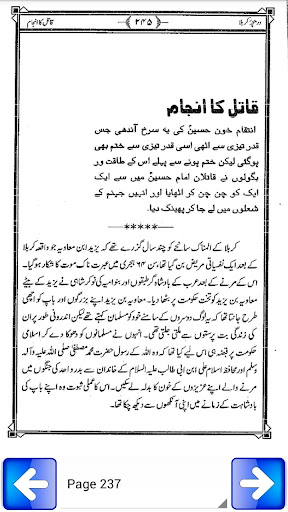 درصحرا کربلا ۲۴۵ قاتل کا انجام
قاتل کا انجام
انتقام خون حسینؑ کی یہ سرخ آندھی جس
قدر تیزی سے اٹھی اسی قدر تیزی سے ختم بھی
ہوگئی لیکن ختم ہونے سے پہلے اس کے طاقت ور
بگولوں نے قاتلان امام حسینؑ میں سے ایک
ایک کو چن چن کر اٹھایا اور انہیں جہنم کے
شعلوں میں لے جا کر پھینک دیا۔
—*****—
کربلا کے المناک سانحے کو چند سال گزرے تھے کہ یزید بن معاویہ جو واقعہ کربلا
کے بعد ایک نفسیاتی مریض بن گیا تھا، سن ۶۴ ہجری میں عبرت ناک موت کا شکار ہو گیا۔
اس کے مرنے کے بعد عرب کے بادشاہ گر قبیلوں اور بنو امیہ کی نوکر شاہی نے یزید کے بیٹے
معاویہ بن یزید کو تخت حکومت پر بٹھا دیا۔ معاویہ بن یزید اپنے بزرگوں اور باپ کو اچھی
طرح جانتا تھا کہ یہ لوگ دوسروں کے سامنے خود کو مسلمان کہتے تھے لیکن اندرونی طور پر ان
کی زندگی بت پرستوں سے ملتی جلتی تھی۔ انہوں نے مسلمانوں کو دھوکا دے کر اسلامی
حکومت پر قبضہ ہی اس لیے کیا تھا کہ وہ اللہ کے رسول حضرت محمد مصطفیٰ صلی اللہ علیہ وآلہ
وسلم اور محافظ اسلام علی ابن ابی طالب علیہ السلام کے خاندان سے بدر و احد کی جنگوں میں
مرنے والے اپنے عزیزوں کے خون کا بدلہ لے سکیں۔ اس کا عملی ثبوت وہ اپنے باپ کی
بادشاہت کے زمانے میں اپنی آنکھوں سے دیکھ چکا تھا۔
Page 237